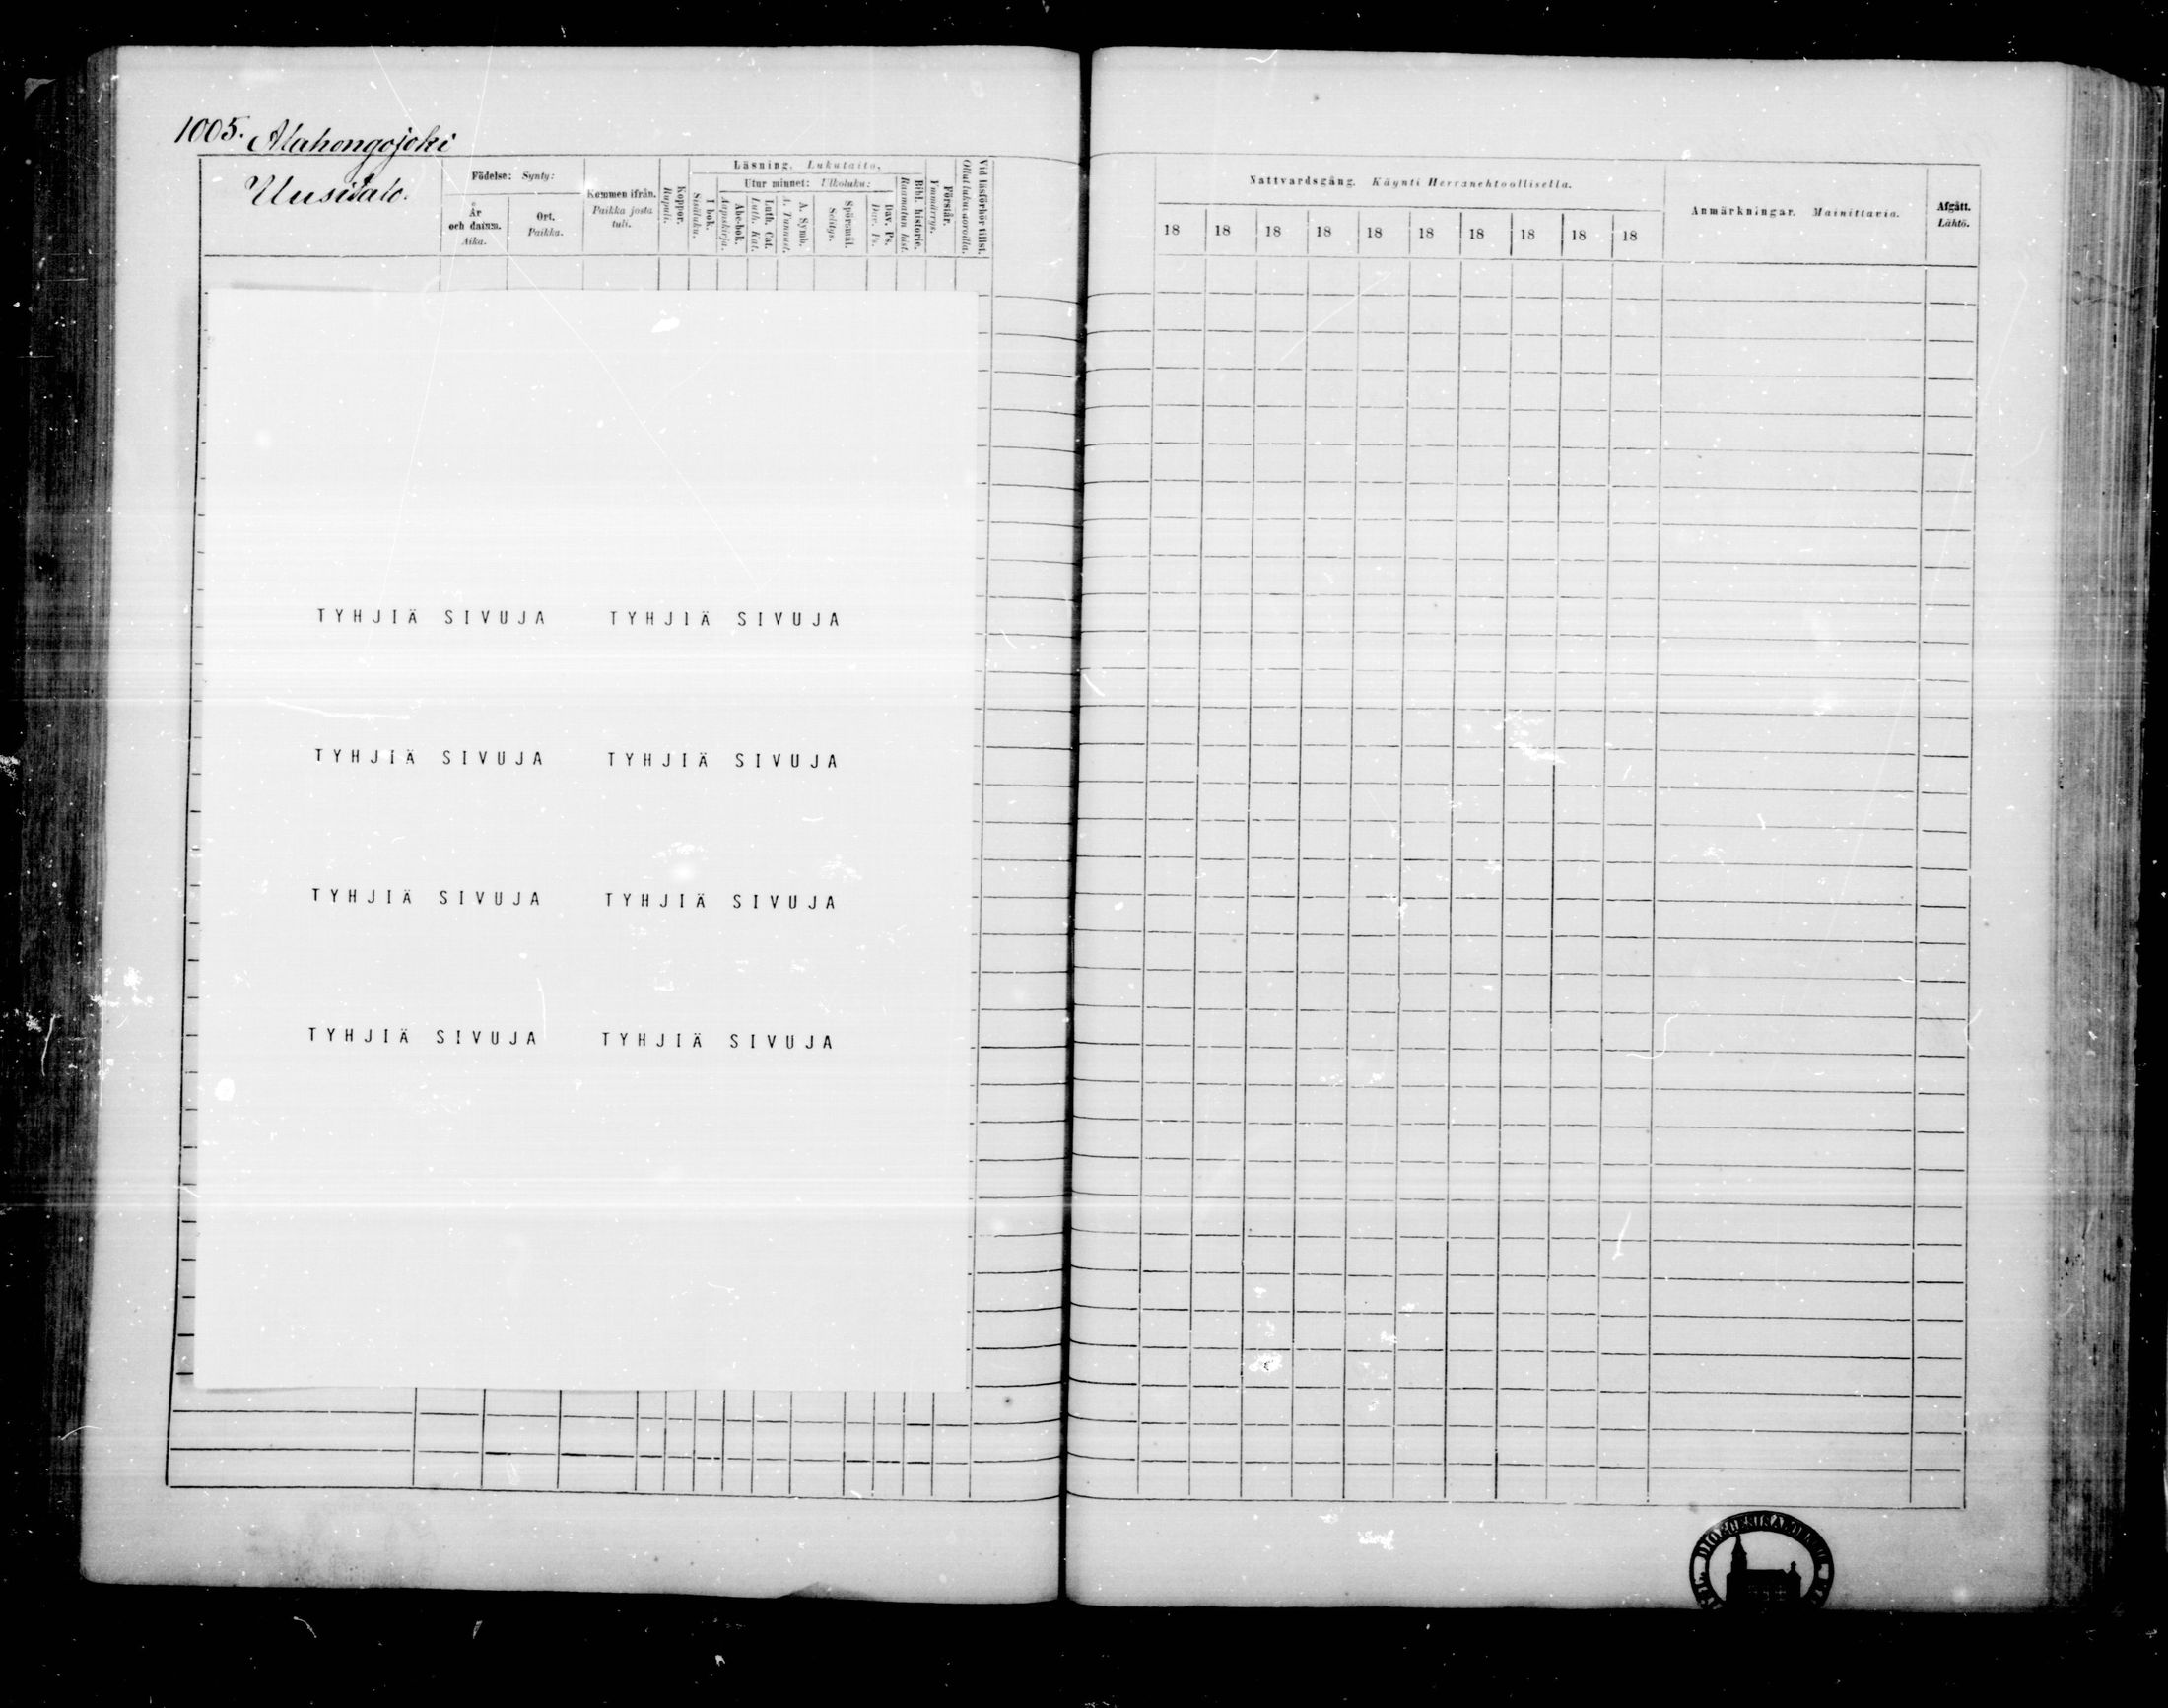 1005. Alahongojoki
Uusitalo.
Födelse: Synty:
År och datum. Aika.
Ort. Paikka.
Kommen ifrån. Paikka josta tuli.
Koppor. Rupuli.
Läsning. Lukutaito.
I bok. Sisäluku.
Utur minnet: Ulkoluku:
Abc-bok. Aapiskirja.
Luth. Cat. Luth. Kat.
A. Symb. A. Tunnust.
Spörsmål. Selitys.
Dav. Ps. Dav. Ps.
Bibl. historie. Raamatun hist.
Förstår. Ymmärrys.
Vid läsförhör tillst.
TYHJIÄ SIVUJA TYHJIÄ SIVUJA
TYHJIÄ SIVUJA TYHJIÄ SIVUJA
TYHJIÄ SIVUJA TYHJIÄ SIVUJA
TYHJIÄ SIVUJA TYHJIÄ SIVUJA
Nattvardsgång. Käynti Herranehtoollisella.
18 18 18 18 18 18 18 18 18 18
Anmärkningar. Mainittavia.
Afgått. Lähtö.